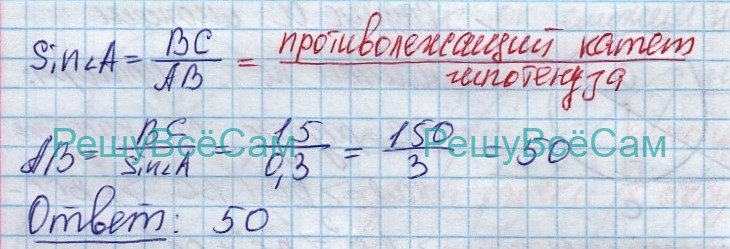 Sin∠A = BC/AB = противолежащий катет/гипотенуза
AB = BC/Sin∠A = 15/0,3 = 150/3 = 50
РешуВсёСам РешуВсёСам
Ответ: 50